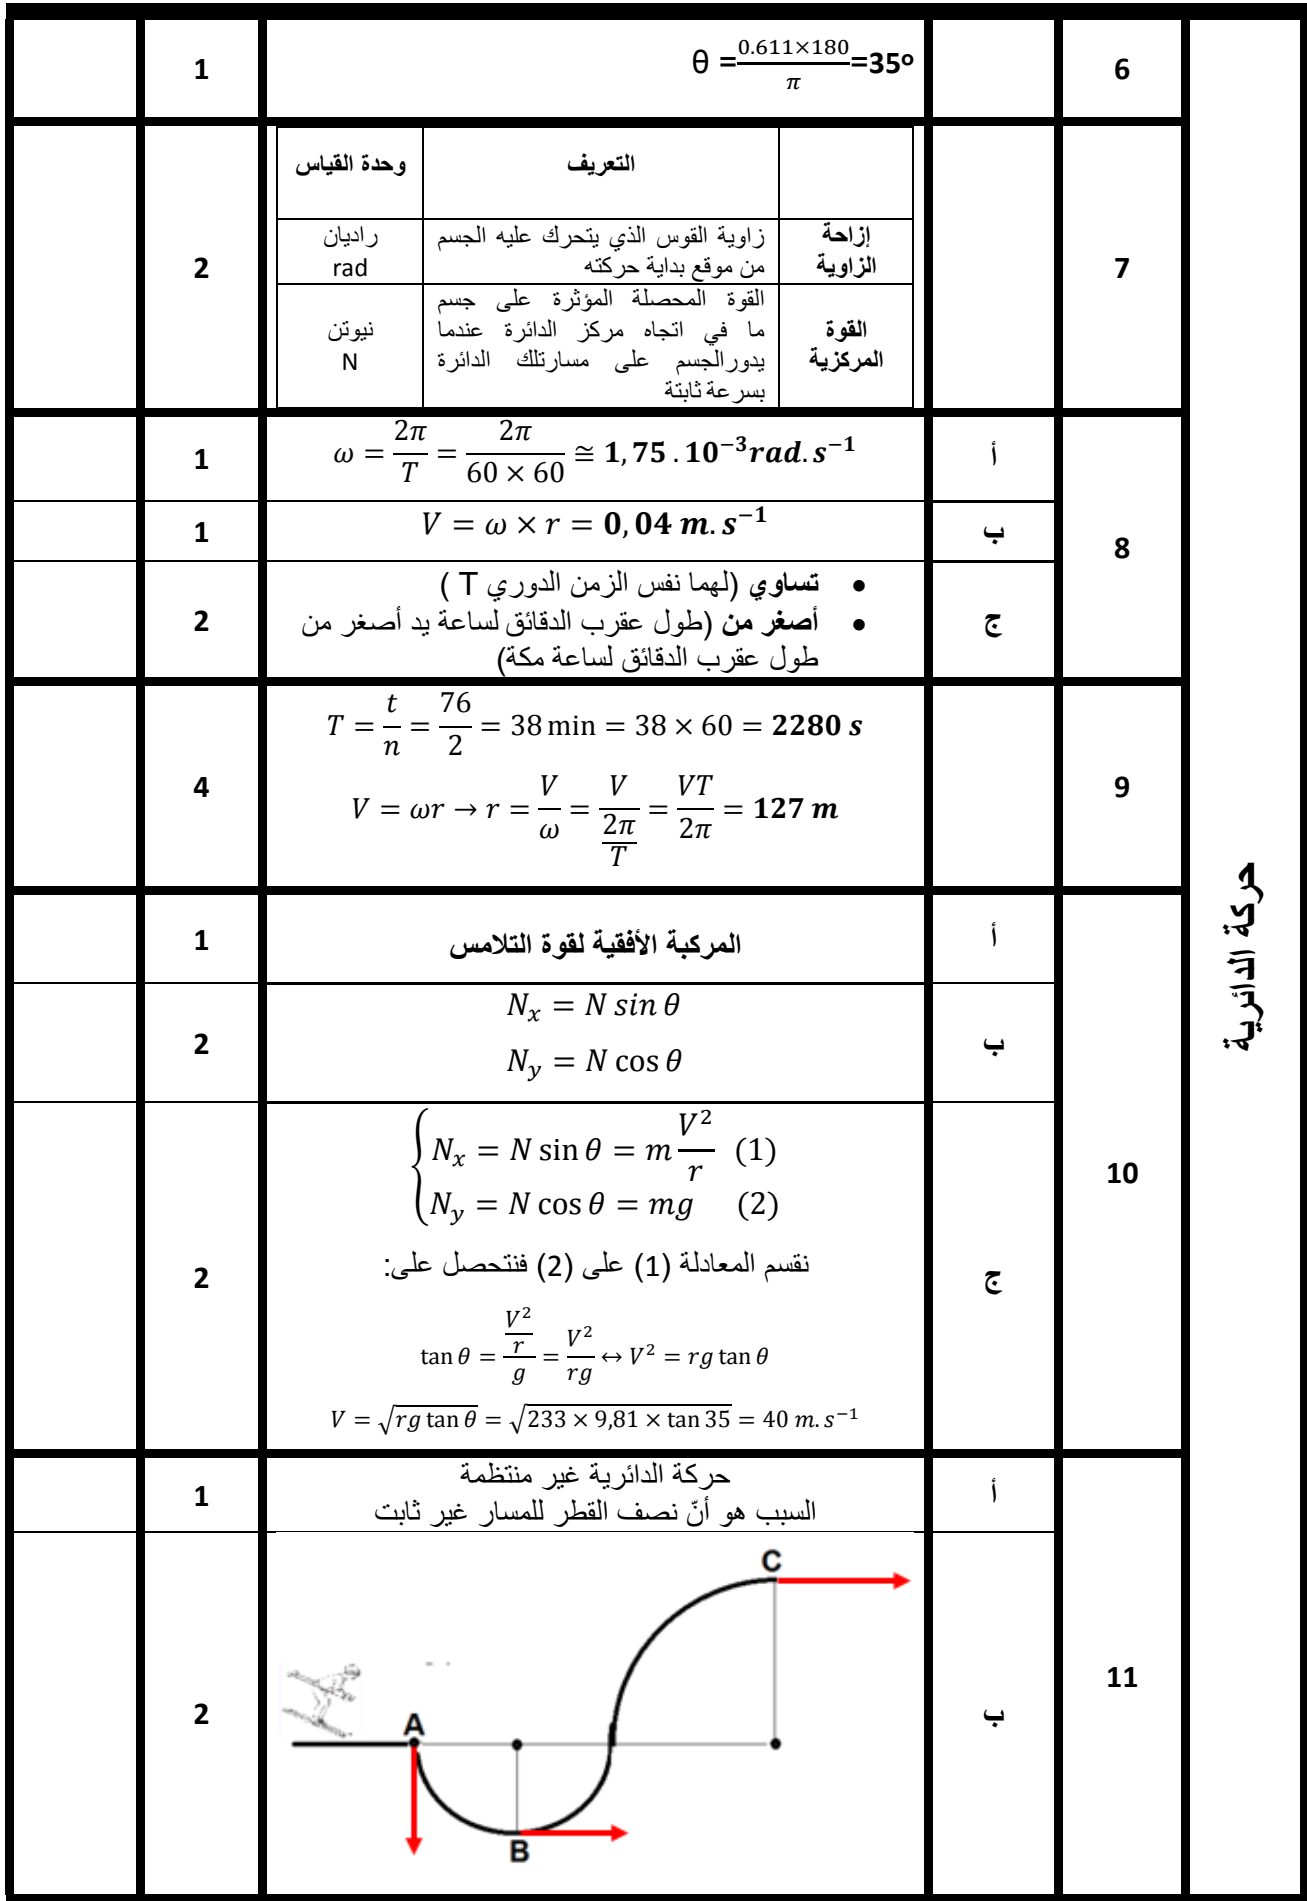 حركة الدائرية
6
θ =0.611×180/π=35º
1
7
التعريف
وحدة القياس
إزاحة الزاوية
زاوية القوس الذي يتحرك عليه الجسم
من موقع بداية حركته
راديان
rad
القوة المركزية
القوة المحصلة المؤثرة على جسم
ما في اتجاه مركز الدائرة عندما
يدورالجسم على مسارتلك الدائرة
بسرعة ثابتة
نيوتن
N
2
8
أ
ω = 2π/T = 2π/(60 × 60) ≅ 1,75 . 10⁻³rad. s⁻¹
1
ب
V = ω × r = 0,04 m. s⁻¹
1
ج
• تساوي (لهما نفس الزمن الدوري T )
• أصغر من (طول عقرب الدقائق لساعة يد أصغر من
طول عقرب الدقائق لساعة مكة)
2
9
T = t/n = 76/2 = 38 min = 38 × 60 = 2280 s
V = ωr → r = V/ω = V/(2π/T) = VT/2π = 127 m
4
10
أ
المركبة الأفقية لقوة التلامس
1
ب
Nₓ = N sin θ
N_y = N cos θ
2
ج
Nₓ = N sin θ = m V²/r (1)
N_y = N cos θ = mg (2)
نقسم المعادلة (1) على (2) فنتحصل على:
tan θ = (V²/r)/g = V²/rg ↔ V² = rg tan θ
V = √(rg tan θ) = √(233 × 9,81 × tan 35) = 40 m. s⁻¹
2
11
أ
حركة الدائرية غير منتظمة
السبب هو أنّ نصف القطر للمسار غير ثابت
1
ب
C
A
B
2